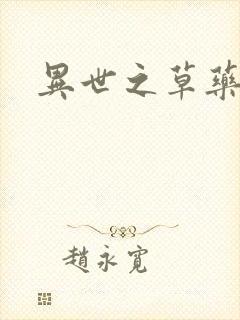 異世之草藥
趙永寬